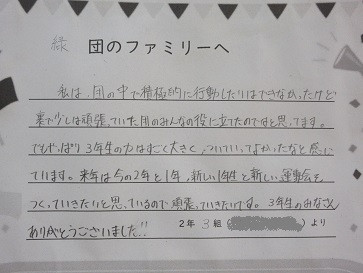 緑 団のファミリーへ
私は、団の中で積極的に行動したりはできなかったけど
裏で少しは頑張っていた団のみんなの役に立てたのですと思ってます。
でもやっぱり3年生の力はすごく大きく、ついていってよかったなと感じ
ています。来年は今の2年と1年、新しい1年生と新しい運動会を
つくっていきたいと思っているので頑張っていきたいです。3年生のみなさん
ありがとうございました!!
2年 3組 ( ) より